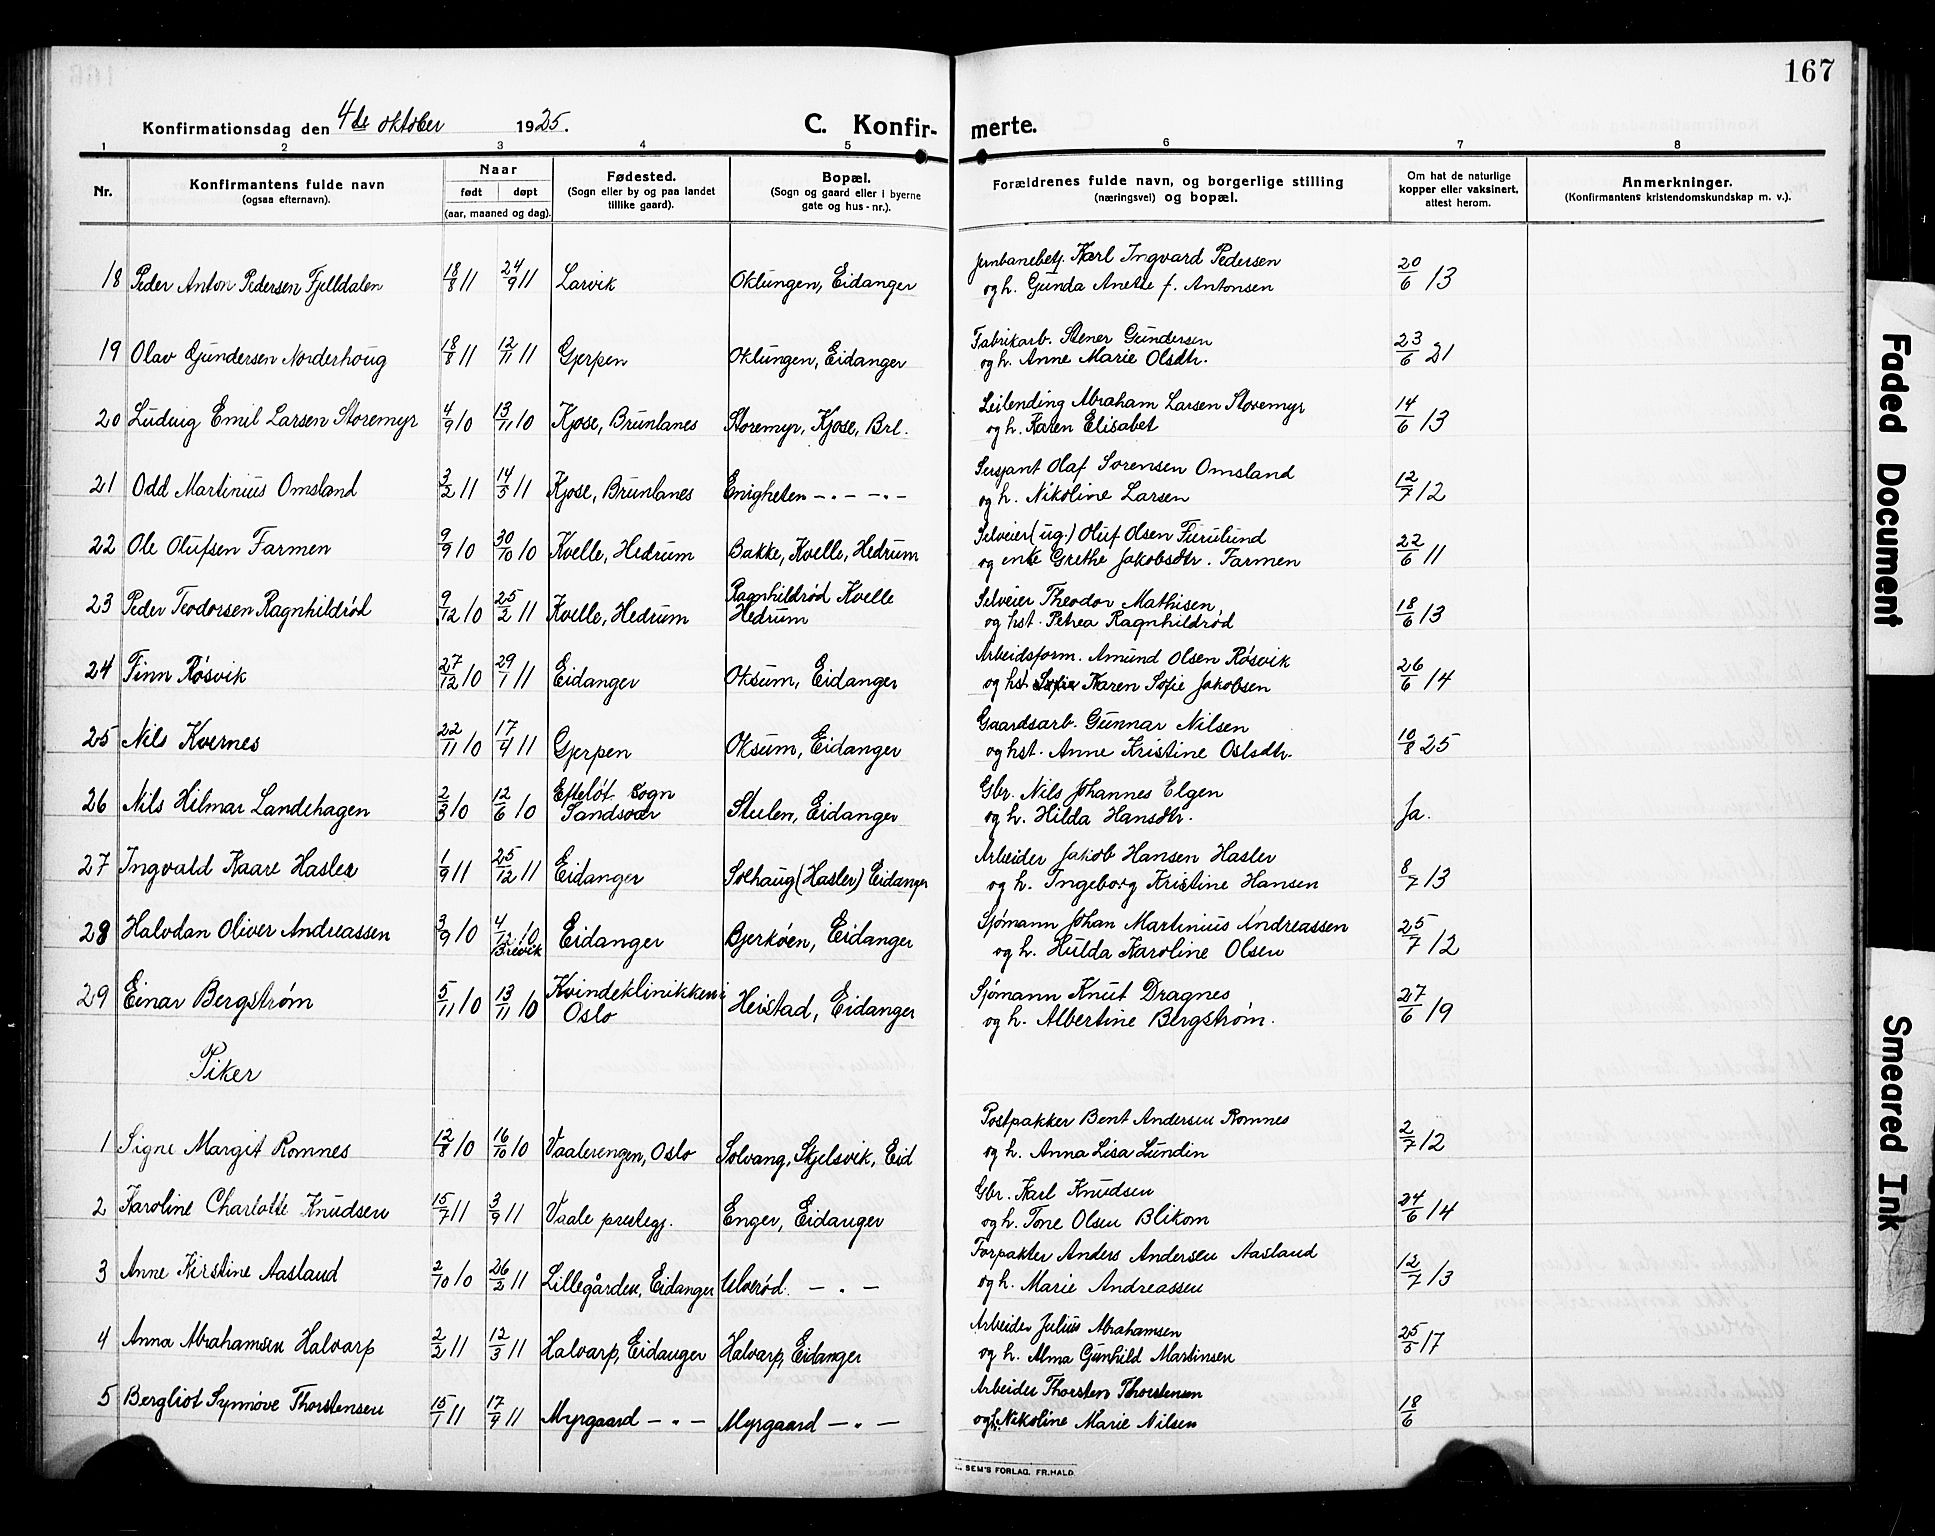 167
Konfirmationsdag den 4de oktober 1925.
C. Konfir- merte.
1 2 3 4 5 6 7 8
Nr.
Konfirmantens fulde navn
(ogsaa efternavn).
Naar
født døpt
(aar, maaned og dag).
Fødested.
(Sogn eller by og paa landet
tillike gaard).
Bopæl.
(Sogn og gaard eller i byerne
gate og hus-nr.).
Forældrenes fulde navn, og borgerlige stilling
(næringsvei) og bopæl.
Om hat de naturlige
kopper eller vaksinert,
attest herom.
Anmerkninger.
(Konfirmantens kristendomskundskap m. v.).
18 Peder Anton Pedersen Fjelldalen 18/8 11 24/9 11 Larvik Oklungen, Eidanger Jernbanebetj. Karl Ingvard Pedersen 20/6 13
og h. Gunda Anette f. Antonsen
19 Olav Gundersen Norderhoug 18/8 11 12/11 11 Gjerpen Oklungen, Eidanger Fabrikarb. Stener Gundersen 23/6 21
og h. Anne Marie Olsdtr.
20 Ludvig Emil Larsen Storemyr 4/9 10 13/11 10 Kjose, Brunlanes Storemyr, Kjose, Brl. Leilending Abraham Larsen Storemyr 14/6 13
og h. Karen Elisabet
21 Odd Martinius Omsland 3/2 11 14/5 11 Kjose, Brunlanes Enigheten -„- -„- Sersjant Olaf Sorensen Omsland 12/7 12
og h. Nikoline Larsen
22 Ole Olufsen Farmen 9/9 10 30/10 10 Kvelle, Hedrum Bakke, Kvelle, Hedrum Selveier (ug.) Oluf Olsen Furulund 22/6 11
og enke Grethe Jakobsdtr. Farmen
23 Peder Teodorsen Ragnhildrød 9/12 10 25/2 11 Kvelle, Hedrum Ragnhildrød Kvelle Hedrum Selveier Theodor Mathisen, 18/6 13
og hst. Petrea Ragnhildrød
24 Finn Røsvik 27/12 10 29/1 11 Eidanger Oksum, Eidanger Arbeidsform. Amund Olsen Røsvik 26/6 14
og hst. Sofie Karen Sofie Jakobsen
25 Nils Kvernes 22/11 10 17/4 11 Gjerpen Oksum, Eidanger Gaardsarb. Gunnar Nilsen 10/8 25
og hst. Anne Kristine Oslsdtr.
26 Nils Hilmar Landehagen 2/3 10 12/6 10 Efteløt sogn Sandsvær Stulen, Eidanger Gbr. Nils Johannes Elgen Ja.
og h. Hilda Hansdtr.
27 Ingvald Kaare Hasler 1/9 11 25/12 11 Eidanger Solhaug (Hasler) Eidanger Arbeider Jakob Hansen Hasler 8/7 13
og h. Ingeborg Kristine Hansen
28 Halvdan Oliver Andreassen 3/9 10 4/12 10 Brevik Eidanger Bjerkøen, Eidanger Sjømann Johan Martinius Andreassen 25/7 12
og h. Hulda Karoline Olsen
29 Einar Bergstrøm 5/11 10 13/11 10 Kvindeklinikken i Oslo Heistad, Eidanger Sjømann Knut Dragnes 27/6 19
og h. Albertine Bergstrøm.
Piker
1 Signe Margit Romnes 12/8 10 16/10 10 Vaalerengen, Oslo Solvang, Skjelsvik, Eid Postpakker Bent Andersen Romnes 2/7 12
og h. Anna Lisa Lundin
2 Karoline Charlotte Knudsen 15/7 11 3/9 11 Vaale prestegj. Enger, Eidanger Gbr. Karl Knudsen 24/6 14
og h. Tone Olsen Blikom
3 Anne Kirstine Aasland 2/10 10 26/2 11 Lillegården, Eidanger Ulverød. -„- Forpakter Anders Andersen Aasland 12/7 13
og h. Marie Andreassen
4 Anna Abrahamsen Halvarp 2/2 11 12/3 11 Halvarp, Eidanger Halvarp, Eidanger Arbeider Julius Abrahamsen 25/5 17
og h. Alma Gunhild Martinsen
5 Bergliot Synnøve Thorstensen 15/1 11 17/4 11 Myrgaard -„- Myrgaard -„- Arbeider Thorsten Thorstensen 18/6
og h. Nikoline Marie Nilsen
SEM'S FORLAG. FR.HALD.
Faded Document
Smeared Ink